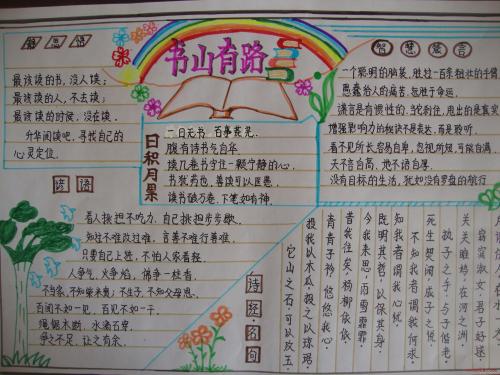 书山有路
最该读的书,没人读;
最该读的人,不去读;
最该读的时候,没在读.
升华阅读吧,寻找自己的
心灵定位.
日积月累
一日无书,百事荒芜.
腹有诗书气自华
读几卷书守住一颗宁静的心.
书犹药也,善读可以医愚
读书破万卷,下笔如有神.
智慧箴言
一个聪明的脑袋,胜过一百条粗壮的手臂
愚蠢给人的痛苦,甚于命运.
增强影响力的秘诀不是表达,而是聆听.
看不见所长容易自卑,忽视所短,可致自满.
天不言自高,地不语自厚.
没有目标的生活,犹如没有罗盘的航行
谚语
看人挑担不吃力,自己挑担步步歇.
知过不难改过难,言善不难行善难.
只要自己上进,不怕人家看轻.
人争气,火争焰,佛争一柱香.
不当家,不知柴米贵;不生子,不知父母恩.
百闻不如一见,百见不如一干.
绳锯木断,水滴石穿.
争之不足,让之有余.
诗经·名句
窈窕淑女,君子好逑.
关关雎鸠,在河之洲.
执子之手,与子偕老.
死生契阔,与子成说.
不知我者谓我何求.
知我者谓我心忧,
既明且哲,以保其身.
今我来思,雨雪霏霏
昔我往矣,杨柳依依
青青子衿,悠悠我心.
投我以木瓜,报之以琼琚
它山之石,可以攻玉.